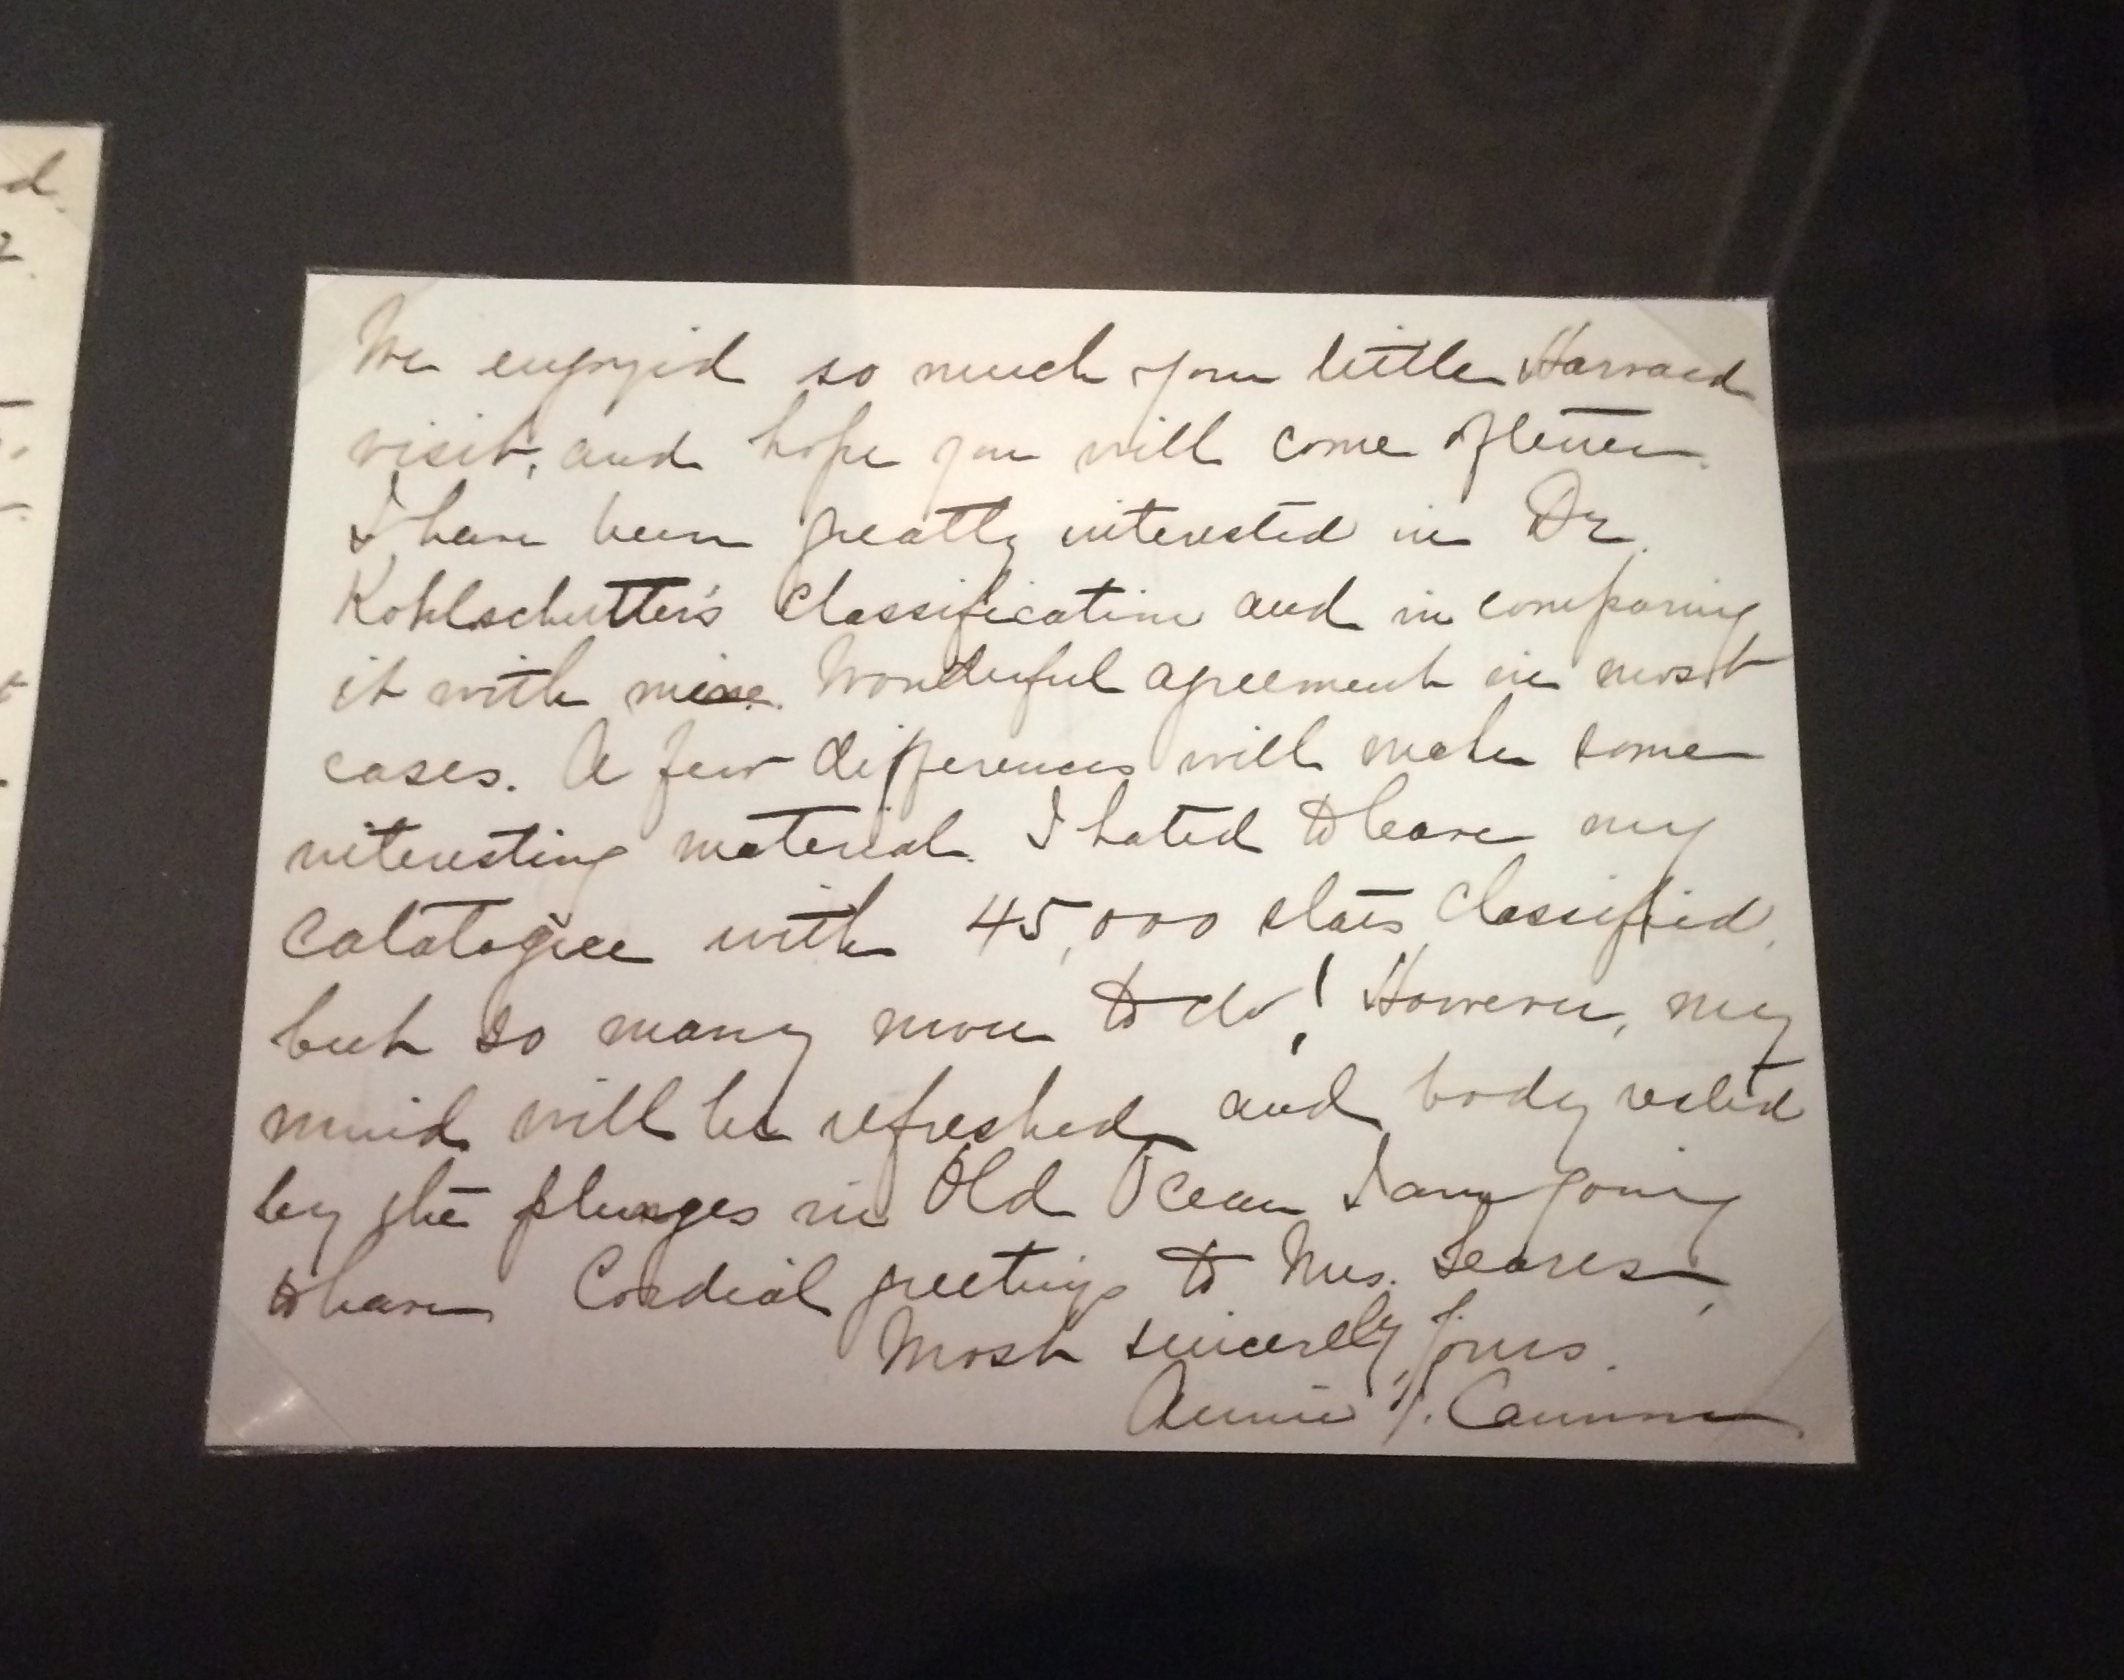 d.
2.
We enjoyed so much your little Harvard
visit, and hope you will come oftener.
I have been greatly interested in Dr.
Kohlschutter's Classification and in comparing
it with mine. Wonderful agreement in most
cases. A few differences will make some
interesting material. I hated to leave my
Catalogue with 45,000 stars classified,
but so many more to do! However, my
mind will be refreshed and body rested
by the plunges in Old Ocean I am going
to have. Cordial greetings to Mrs. Seares,
Most sincerely yours.
Annie J. Cannon.